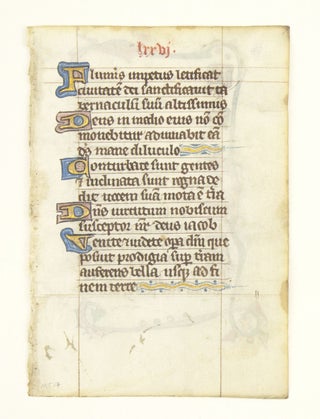 lxxvj.
Fluminis impetus letificat
ciuitatē dei sanctificauit ta
bernaculū suū altissimus
Deus in medio eius nō cō
mouebitur adiuuabit eā
dſ mane diluculo
Conturbate sunt gentes
⁊ inclinata sunt regna de
dit uocem suā mota ē t̄ra
Dn̄s uirtutum nobiscum
susceptor nr̄ deus iacob
Uenite uidete opa dn̄i que
posuit prodigia sup̄ t̄ram
auferens bella usq̄ ad fi
nem terre